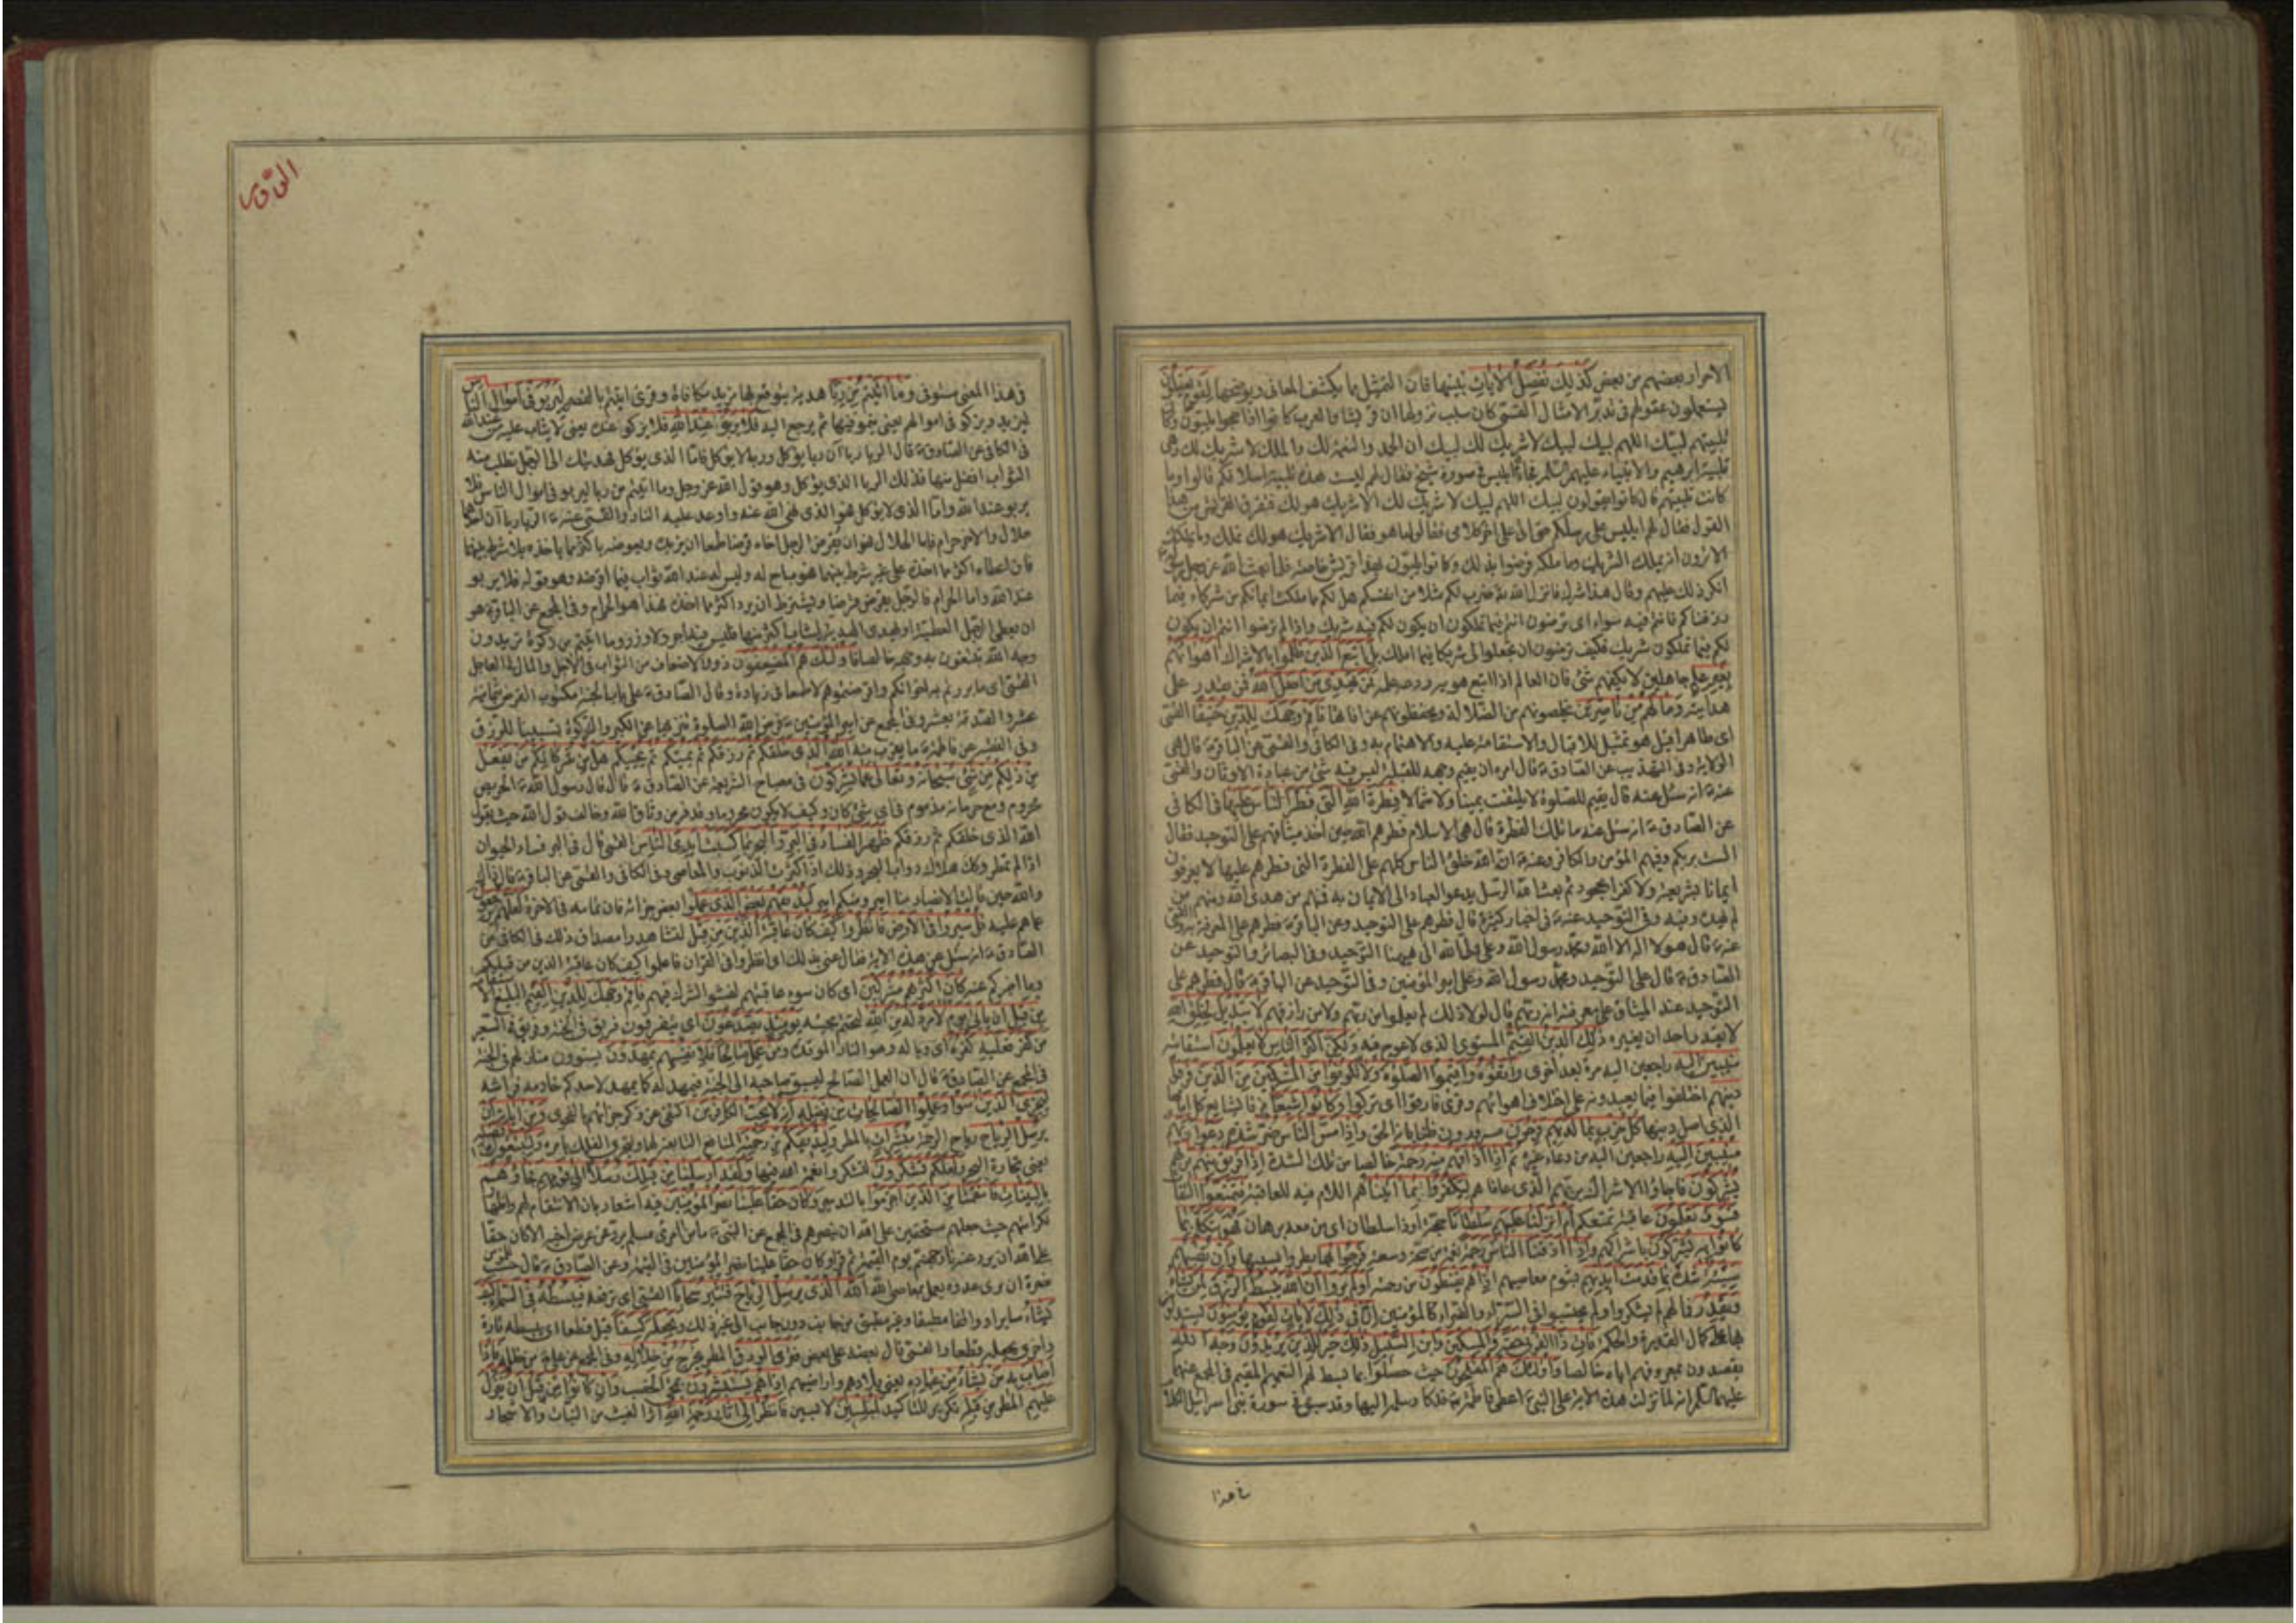 الاحرار بعضهم من بعض كذلك نفصل الآيات نبينها فان التمثيل مما يكشف المعانى ويوضحها لقوم يعقلون
يستعملون عقولهم فى تدبر الامثال القمى كان سبب نزولها ان قريشا والعرب كانوا اذا حجوا يلبون وكا
تلبيتهم لبيك اللهم لبيك لبيك لا شريك لك لبيك ان الحمد والنعمة لك والملك لا شريك لك وهى
تلبية ابرهيم والانبياء عليهم السلم فجائهم ابليس فى صورة شيخ فقال لهم ليست هذه تلبية اسلافكم قالوا وما
كانت تلبيتهم قال كانوا يقولون لبيك اللهم لبيك لا شريك لك الا شريك هو لك فنفرت قريش من هذا
القول فقال لهم ابليس على رسلكم حتى اتى على اخر كلامى فقالوا ما هو فقال الا شريك هو لك تملكه وما يملك
الا ترون انه يملك الشريك وما ملكه فرضوا بذلك وكانوا يلبون بهذا قريش خاصة فلما بعث الله عز وجل رسوله
انكر ذلك عليهم وقال هذا شرك فانزل الله ضرب لكم مثلا من انفسكم هل لكم مما ملكت ايمانكم من شركاء فيما
رزقناكم فانتم فيه سواء اى ترضون انتم فيما تملكون ان يكون لكم فيه شريك واذا لم ترضوا انتم ان يكون
لكم فيما تملكون شريك فكيف ترضون ان تجعلوا لى شريكا فيما املك بل اتبع الذين ظلموا بالاشراك اهوائهم
بغير علم جاهلين لا يكفهم شئ فان العالم اذا اتبع هويه ردعه علمه فمن يهدى من اضل الله فمن يقدر على
هدايته وما لهم من ناصرين يخلصونهم من الضلالة ويحفظونهم عن افاتها فاقم وجهك للدين حنيفا القمى
اى طاهرا قيل هو تمثيل للاقبال والاستقامة عليه والاهتمام به وفى الكافى والقمى عن الباقر قال هى
الولاية وفى التهذيب عن الصادق قال امره ان يقيم وجهه للقبلة ليس فيه شئ من عبادة الاوثان والقمى
عنه انه سئل عنه قال يقيم للصلوة لا يلتفت يمينا ولا شمالا فطرة الله التى فطر الناس عليها فى الكافى
عن الصادق انه سئل عنه ما تلك الفطرة قال هى الاسلام فطرهم الله حين اخذ ميثاقهم على التوحيد فقال
الست بربكم وفيهم المؤمن والكافر وعنه ان الله خلق الناس كلهم على الفطرة التى فطرهم عليها لا يعرفون
ايمانا بشريعة ولا كفرا بجحود ثم بعث الله الرسل يدعو العباد الى الايمان به فمنهم من هدى الله ومنهم من
لم يهده وفى التوحيد عنه فى اخبار كثيرة قال فطرهم على التوحيد وعن الباقر فطرهم على المعرفة به والقمى
عنه قال هو لا اله الا الله ومحمد رسول الله وعلى ولى الله الى هيهنا التوحيد وفى البصائر والتوحيد عن
الصادق قال على التوحيد ومحمد رسول الله وعلى امير المؤمنين وفى التوحيد عن الباقر قال فطرهم على
التوحيد عند الميثاق على معرفته انه ربهم قال لولا ذلك لم يعلموا من ربهم ولا من رازقهم لا تبديل لخلق الله
لا يقدر احد ان يغيره ذلك الدين القيم المستوى الذى لا عوج فيه ولكن اكثر الناس لا يعلمون استقامته
منيبين اليه راجعين اليه مرة بعد اخرى واتقوه واقيموا الصلوة ولا تكونوا من المشركين من الذين فرقوا
دينهم اختلفوا فيما يعبدونه على اختلاف اهوائهم وقرئ فارقوا اى تركوا وكانوا شيعا فرقا تشايع كل امامها
الذى اصل دينها كل حزب بما لديهم فرحون مسرورون ظنا بانه الحق واذا مس الناس ضر شدة دعوا ربهم
منيبين اليه راجعين اليه من دعاء غيره ثم اذا اذاقهم منه رحمة خالصا من تلك الشدة اذا فريق منهم بربهم
يشركون فاجاؤا الاشراك بربهم الذى عافاهم ليكفروا بما اتيناهم اللام فيه للعاقبة فتمتعوا التفا
فسوف تعلمون عاقبة تمتعكم ام انزلنا عليهم سلطانا حجة او ذا سلطان اى من معه برهان فهو يتكلم بما
كانوا به يشركون باشراكهم واذا اذقنا الناس رحمة نعمة من صحة وسعة فرحوا بها بطروا بسببها وان تصبهم
سيئة شدة بما قدمت ايديهم بشوم معاصيهم اذا هم يقنطون من رحمته اولم يروا ان الله يبسط الرزق لمن يشاء
ويقدر فما لهم لم يشكروا ولم يحتسبوا فى السراء والضراء كالمؤمنين ان فى ذلك لايات لقوم يؤمنون ليستدلوا
بها على كمال القدرة والحكمة فات ذا القربى حقه والمسكين وابن السبيل ذلك خير للذين يريدون وجه الله
يقصدون بمعروفهم اياه خالصا واولئك هم المفلحون حيث حصلوا بما بسط لهم النعيم المقيم فى المجمع عنهما
عليهما السلم انه لما نزلت هذه الاية على النبى اعطى فاطمة فدكا وسلمه اليها وقد سبق فى سورة بنى اسرائيل الكلام
فى هذا
فى هذا المعنى مستوفى وما اتيتم من ربا هدية يتوقع بها مزيد مكافاة وقرئ اتيتم بالقصر ليربو فى اموال الناس
ليزيد ويزكو فى اموالهم يعنى ينمو فيها ثم يرجع اليه فلا يربو عند الله فلا يزكو عنده يعنى لا يثاب عليه من عند الله
فى الكافى عن الصادق قال الربا ربا آن ربا يؤكل وربا لا يؤكل فاما الذى يؤكل فهديتك الى الرجل تطلب منه
الثواب افضل منها فذلك الربا الذى يؤكل وهو قول الله عز وجل وما اتيتم من ربا ليربو فى اموال الناس فلا
يربو عند الله واما الذى لا يؤكل فهو الذى نهى الله عنه واوعد عليه النار والقمى عنه الربا ربا آن احدهما
حلال والاخر حرام فاما الحلال فهو ان يقرض الرجل اخاه قرضا طمعا ان يزيده ويعوضه باكثر مما ياخذه بلا شرط بينهما
فان اعطاه اكثر مما اخذه على غير شرط بينهما فهو مباح له وليس له عند الله ثواب فيما اقرضه وهو قوله فلا يربو
عند الله واما الحرام فالرجل يقرض قرضا ويشترط ان يرد اكثر مما اخذه فهذا هو الحرام وفى المجمع عن الباقر هو
ان يعطى الرجل العطية او يهدى الهدية ليثاب اكثر منها فليس فيه اجر ولا وزر وما اتيتم من زكوة تريدون
وجه الله تبتغون به وجهه خالصا فاولئك هم المضعفون ذوو الاضعاف من الثواب فى الاجل والمال فى العاجل
القمى اى ما بررتم به اخوانكم واقرضتموهم لا طمعا فى زيادة وقال الصادق على باب الجنة مكتوب القرض بثمانية
عشر والصدقة بعشر وفى المجمع عن امير المؤمنين فرض الله الصلوة تنزيها عن الكبر والزكوة تسبيبا للرزق
وفى الفقيه عن فاطمة ما يقرب منه الله الذى خلقكم ثم رزقكم ثم يميتكم ثم يحييكم هل من شركائكم من يفعل
من ذلكم من شئ سبحانه وتعالى عما يشركون فى مصباح الشريعة عن الصادق قال قال رسول الله الحريص
محروم ومع حرمانه مذموم فى اى شئ كان وكيف لا يكون محروما وقد فر من وثاق الله وخالف قول الله حيث يقول
الله الذى خلقكم ثم رزقكم ظهر الفساد فى البر والبحر بما كسبت ايدى الناس القمى قال فى البر فساد الحيوان
اذا لم تمطر وكك هلاك دواب البحر وذلك اذا كثرت الذنوب والمعاصى وفى الكافى والقمى عن الباقر قال ذاك
والله حين قالت الانصار منا امير ومنكم امير ليذيقهم بعض الذى عملوا بعض جزائه فان تمامه فى الاخرة لعلهم يرجعون
عما هم عليه قل سيروا فى الارض فانظروا كيف كان عاقبة الذين من قبل لتشاهدوا مصداق ذلك فى الكافى عن
الصادق انه سئل عن هذه الاية فقال عنى بذلك اى انظروا فى القران فاعلموا كيف كان عاقبة الذين من قبلكم
وما اخبركم عنه كان اكثرهم مشركين اى كان سوء عاقبتهم لفشو الشرك فيهم فاقم وجهك للدين القيم البليغ الا
من قبل ان ياتى يوم لا مرد له من الله لتحتم مجيئه يومئذ يصدعون اى يتفرقون فريق فى الجنة وفريق فى السعير
من كفر فعليه كفره اى وباله وهو النار الموبدة ومن عمل صالحا فلانفسهم يمهدون يسوون منازلهم فى الجنة
فى المجمع عن الصادق قال ان العمل الصالح ليسبق صاحبه الى الجنة فيمهد له كما يمهد لاحدكم خادمه فراشه
ليجزى الذين امنوا وعملوا الصالحات من فضله انه لا يحب الكافرين اكتفى عن ذكر جزائهم بالفحوى ومن اياته ان
يرسل الرياح رياح الرحمة مبشرات بالمطر وليذيقكم من رحمته المنافع التابعة لها ولتجرى الفلك بامره ولتبتغوا من فضله
يعنى تجارة البحر ولعلكم تشكرون لتشكروا نعمة الله فيها ولقد ارسلنا من قبلك رسلا الى قومهم فجاؤهم
بالبينات فانتقمنا من الذين اجرموا بالتدمير وكان حقا علينا نصر المؤمنين فيه اشعار بان الانتقام لهم واظهار
لكرامتهم حيث جعلهم مستحقين على الله ان ينصرهم فى المجمع عن النبى ما من امرئ مسلم يرد عن عرض اخيه الا كان حقا
على الله ان يرد عنه نار جهنم يوم القيمة ثم قرأ وكان حقا علينا نصر المؤمنين فى الفقيه وعن الصادق قال حسب المؤمن
نصرة ان يرى عدوه يعمل بمعاصى الله الله الذى يرسل الرياح فتثير سحابا القمى اى ترفعه فيبسطه فى السماء كيف
يشاء سايرا وواقفا مطبقا وغير مطبق من جانب دون جانب الى غير ذلك ويجعله كسفا قيل قطعا اى يبسطه تارة
واخرى يجعله قطعا والقمى قال بعضه على بعض فترى الودق المطر يخرج من خلاله وفى المجمع عن على من خلله فاذا
اصاب به من يشاء من عباده يعنى بلادهم واراضيهم اذا هم يستبشرون بمجئ الخصب وان كانوا من قبل ان ينزل
عليهم المطر من قبله تكرير للتاكيد لمبلسين لايسين فانظر الى اثار رحمة الله اثر الغيث من النبات والاشجار